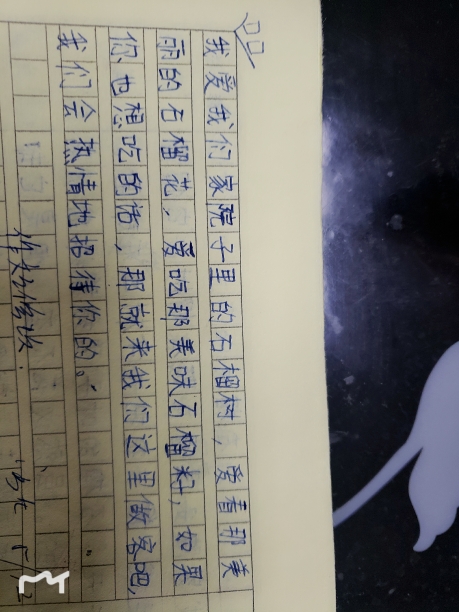 我爱我们家院子里的石榴树，爱看那美
丽的石榴花，爱吃那美味石榴籽，如果
你也想吃的话，那就来我们这里做客吧，
我们会热情地招待你的。
5/12